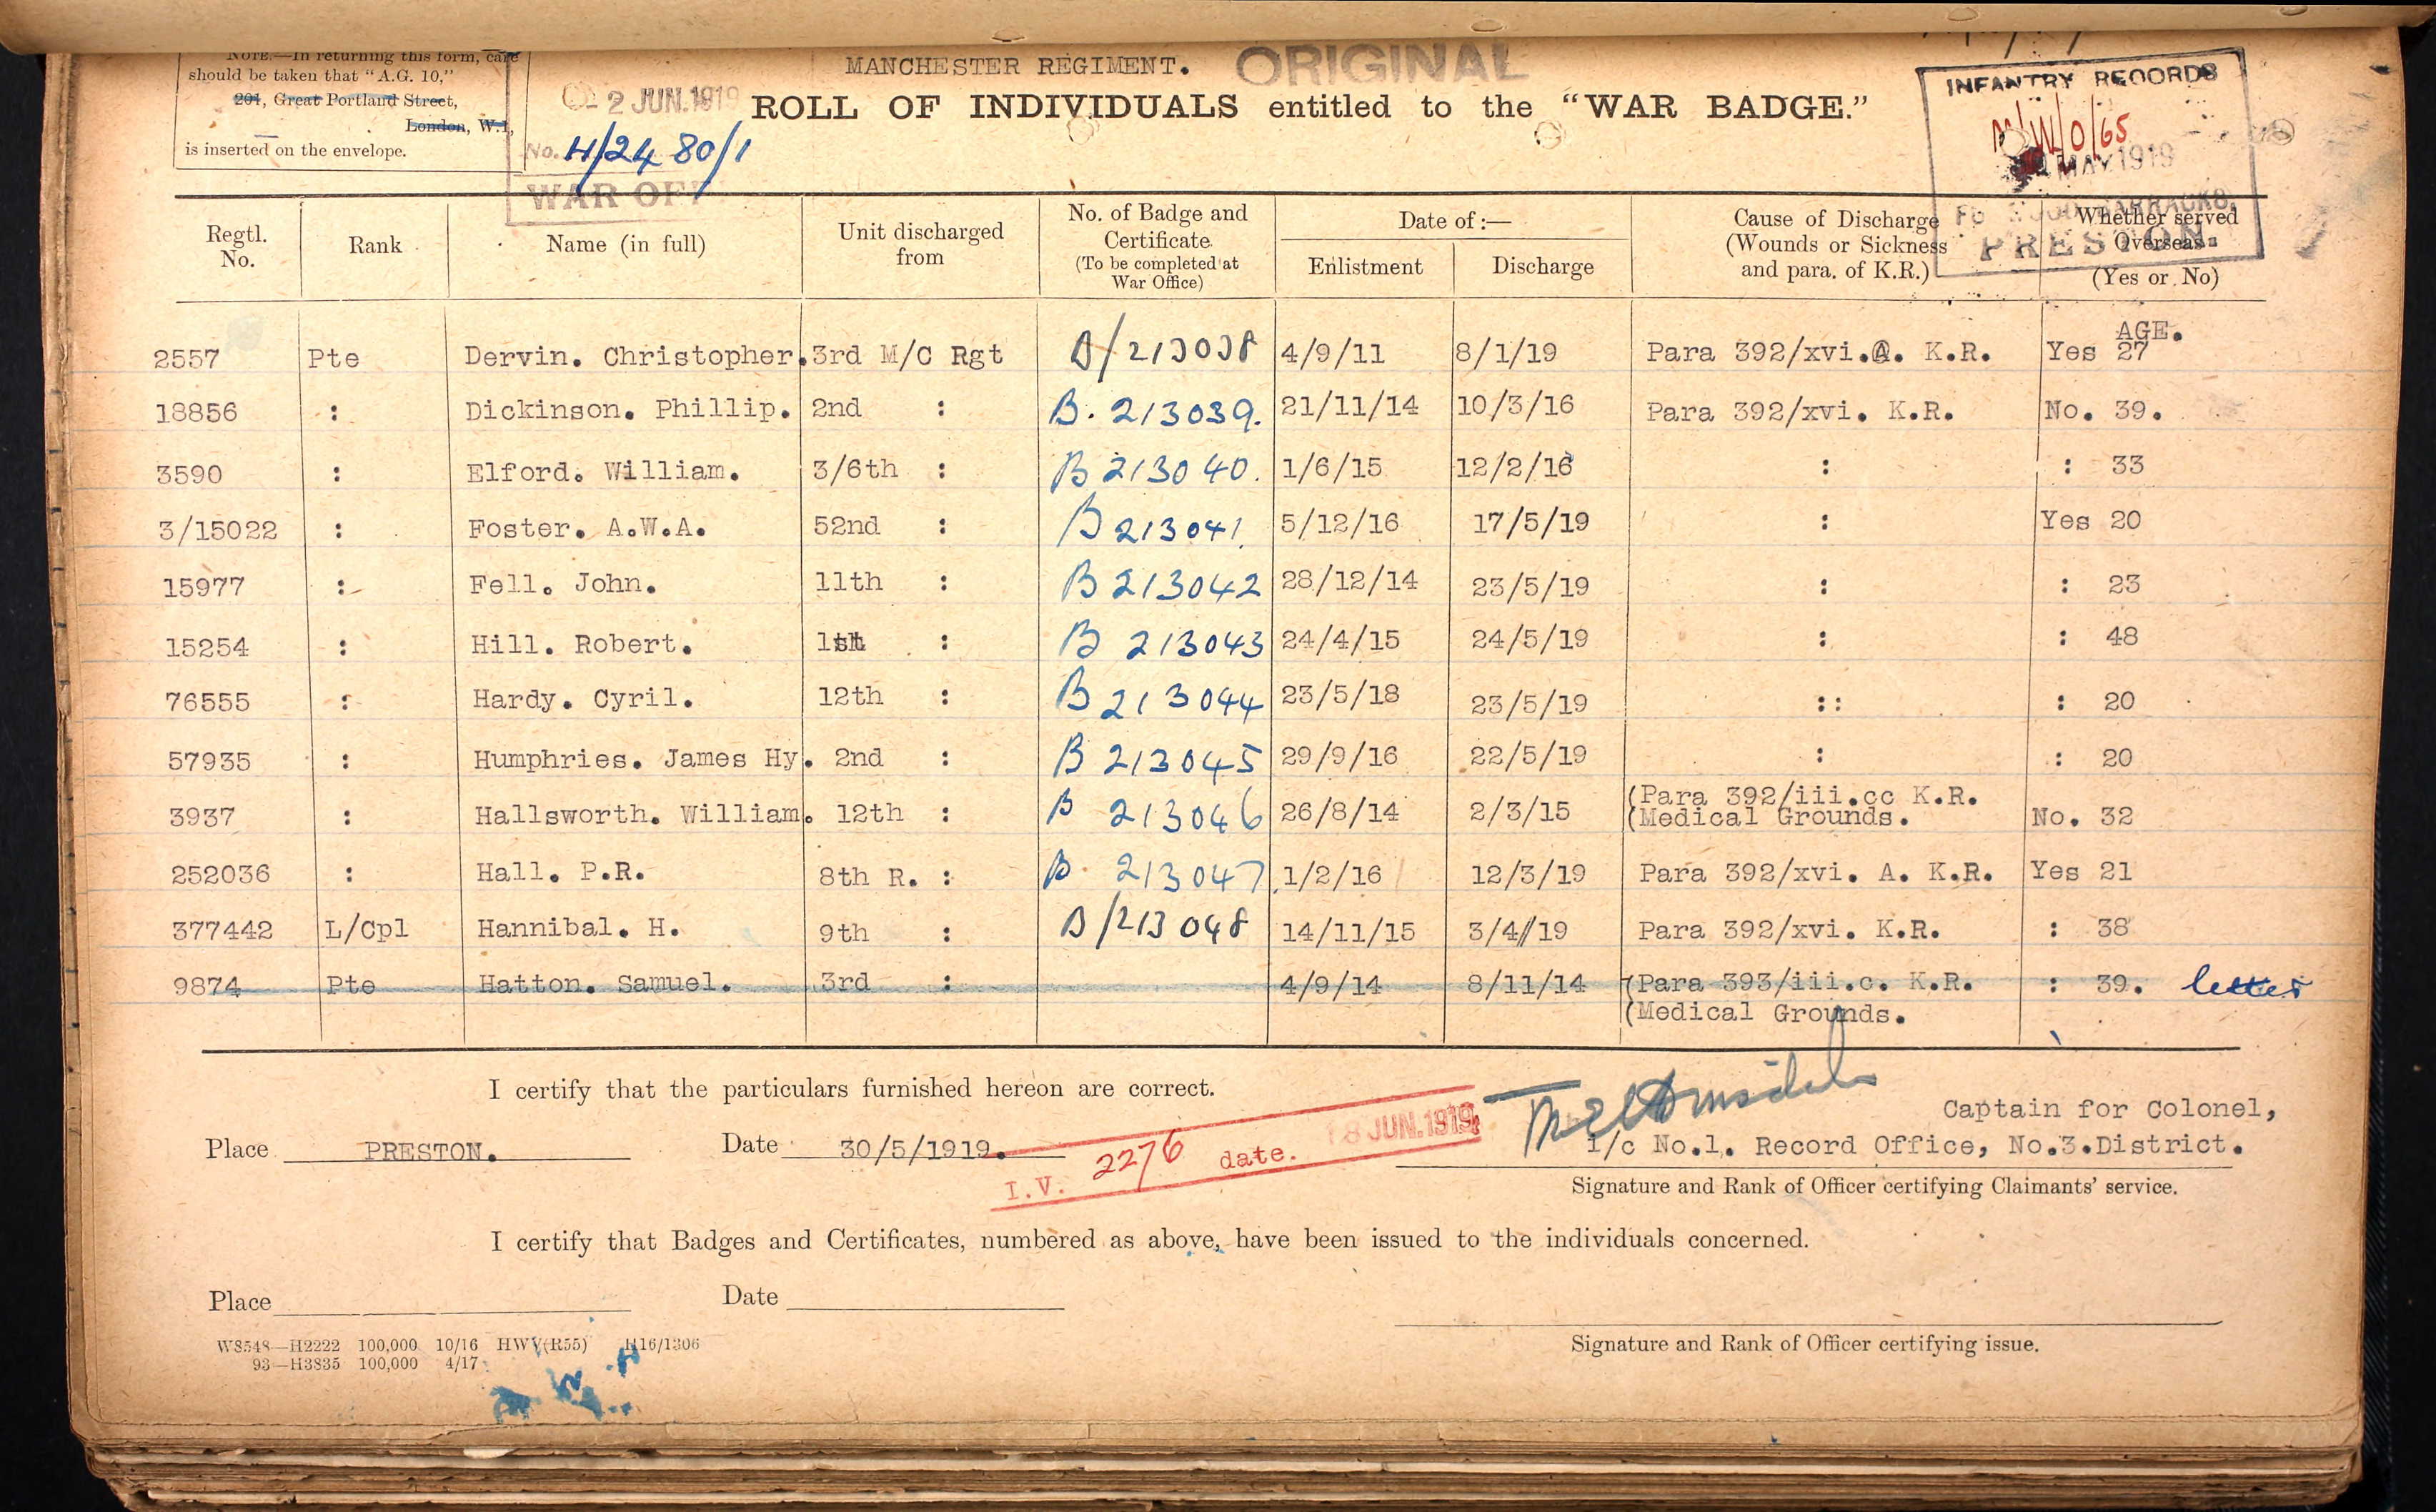 NOTE.—In returning this form, care
should be taken that "A.G. 10,"
201, Great Portland Street,
London, W.1,
is inserted on the envelope.
2 JUN.1919
No. H/24 80/1
WAR OFF
MANCHESTER REGIMENT. ORIGINAL
ROLL OF INDIVIDUALS entitled to the "WAR BADGE."
INFANTRY RECORDS
MAY 1919
PRESTON.
Regtl. No. Rank Name (in full) Unit discharged from No. of Badge and Certificate (To be completed at War Office) Date of:— Enlistment Discharge Cause of Discharge (Wounds or Sickness and para. of K.R.) Whether served Overseas (Yes or No)
AGE.
2557 Pte Dervin. Christopher. 3rd M/C Rgt B/213038 4/9/11 8/1/19 Para 392/xvi.A. K.R. Yes 27
18856 : Dickinson. Phillip. 2nd : B. 213039. 21/11/14 10/3/16 Para 392/xvi. K.R. No. 39.
3590 : Elford. William. 3/6th : B 213040. 1/6/15 12/2/16 : : 33
3/15022 : Foster. A.W.A. 52nd : B 213041. 5/12/16 17/5/19 : Yes 20
15977 : Fell. John. 11th : B 213042 28/12/14 23/5/19 : : 23
15254 : Hill. Robert. 1st : B 213043 24/4/15 24/5/19 : : 48
76555 : Hardy. Cyril. 12th : B 213044 23/5/18 23/5/19 :: : 20
57935 : Humphries. James Hy. 2nd : B 213045 29/9/16 22/5/19 : : 20
3937 : Hallsworth. William. 12th : B 213046 26/8/14 2/3/15 (Para 392/iii.cc K.R. No. 32
(Medical Grounds.
252036 : Hall. P.R. 8th R. : B. 213047 1/2/16 12/3/19 Para 392/xvi. A. K.R. Yes 21
377442 L/Cpl Hannibal. H. 9th : B/213048 14/11/15 3/4/19 Para 392/xvi. K.R. : 38
9874 Pte Hatton. Samuel. 3rd : 4/9/14 8/11/14 (Para 393/iii.c. K.R. : 39. letter
(Medical Grounds.
I certify that the particulars furnished hereon are correct.
Captain for Colonel,
Place PRESTON. Date 30/5/1919. I/c No.1. Record Office, No.3.District.
I.V. 2276 date. 18 JUN.1919
Signature and Rank of Officer certifying Claimants' service.
I certify that Badges and Certificates, numbered as above, have been issued to the individuals concerned.
Place Date
Signature and Rank of Officer certifying issue.
W8548—H2222 100,000 10/16 HWV(R55) H16/1306
93—H3835 100,000 4/17